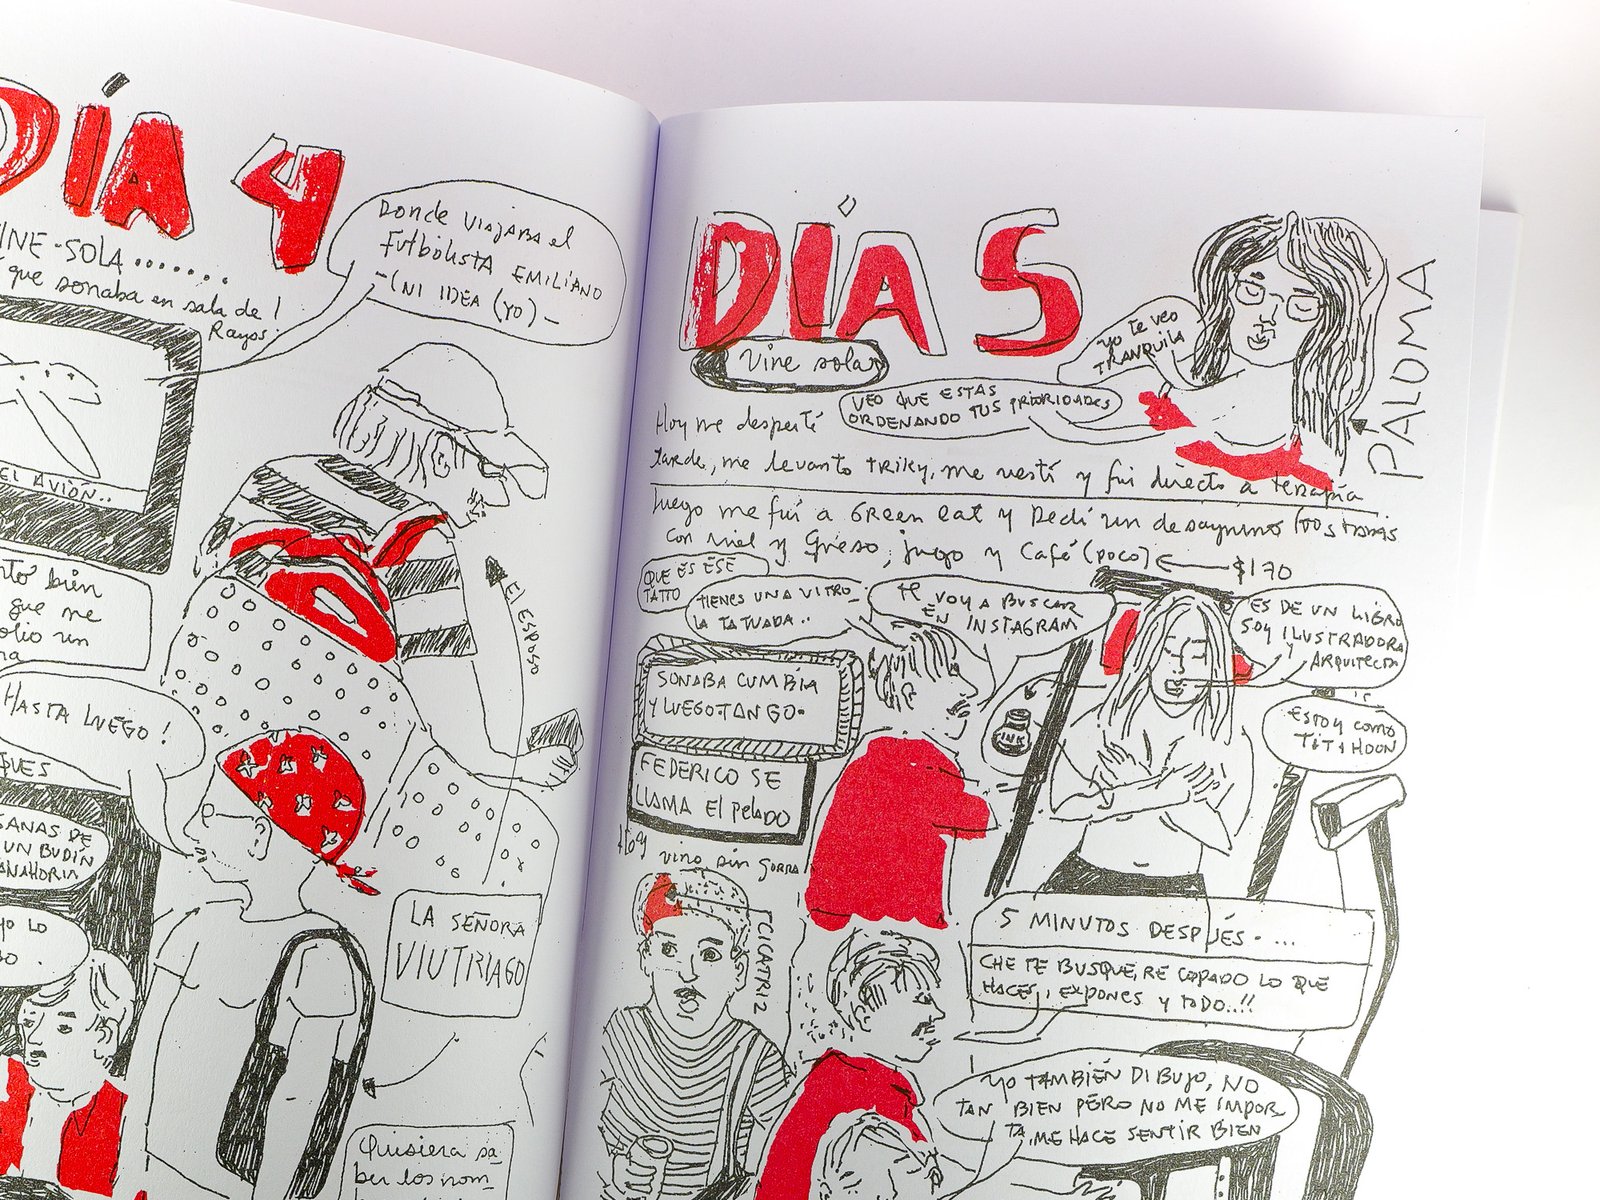 DÍA 4
VINE-SOLA.......
que sonaba en sala de
Rayos
Donde viajaba el
Futbolista EMILIANO
-(NI IDEA (yo)-
EL AVIÓN..
bien
que me
un
EL ESPOSO
HASTA LUEGO!
UN BUDÍN
LA SEÑORA
VIUTRIAGO
Quisiera sa-
ber los nom-
DÍA 5
Vine sola
yo te veo
TRANQUILA
PALOMA
VEO QUE ESTAS
ORDENANDO TUS PRIORIDADES
Hoy me desperté
tarde, me levanto triky, me vestí y fui directo a terapia
luego me fui a GReen eat y Pedí un desayuno (tostadas
con miel y Queso, jugo y Café (poco) ← $170
QUE ES ESE
TATTO
TIENES UNA VITRO-
LA TATUADA..
TE VOY A BUSCAR
EN INSTAGRAM
ES DE UN LIBRO
SOY ILUSTRADORA
Y ARQUITECTA
SONABA CUMBIA
Y LUEGO TANGO.
INK
ESTOY como
TITIHOON
FEDERICO SE
LLAMA El PelADO
Hoy vino sin gorra
CICATRIZ
5 MINUTOS DESPUÉS....
CHE TE BUSQUE, RE COPADO LO QUE
HACES, EXPONES Y TODO..!!
yo TAMBIÉN DIBUJO, NO
TAN BIEN PERO NO ME IMPOR
TA, ME HACE SENTIR BIEN